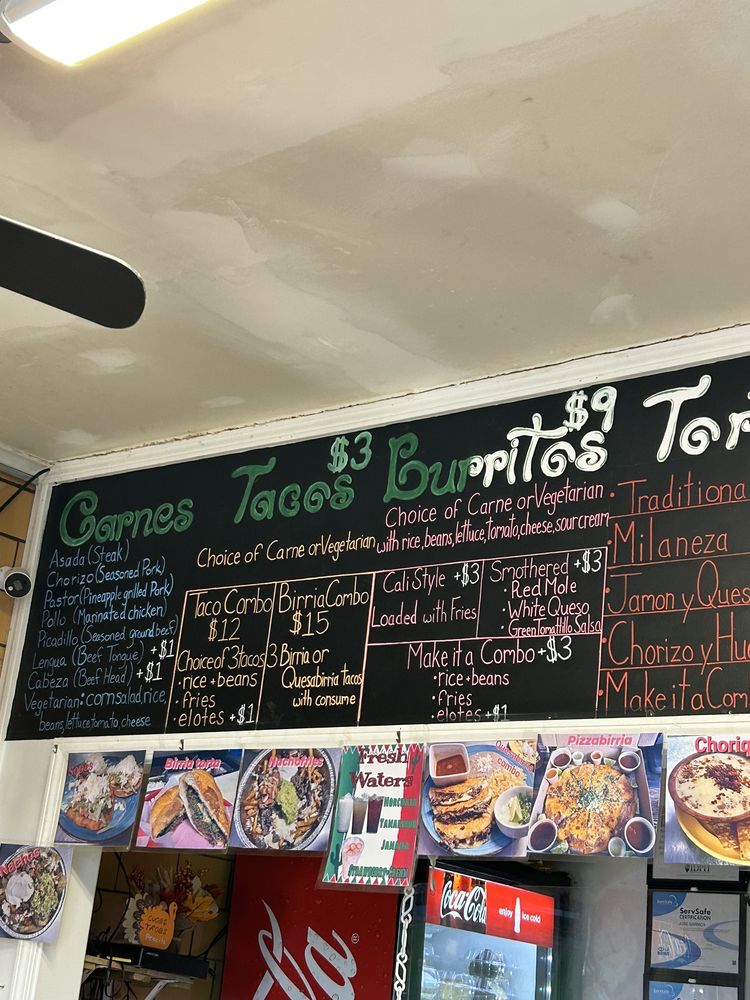 Carnes
Asada (Steak)
Chorizo (Seasoned Pork)
Pastor (Pineapple grilled Pork)
Pollo (Marinated chicken)
Picadillo (Seasoned ground beef)
Lengua (Beef Tongue) +$1
Cabeza (Beef Head) +$1
Vegetarian: corn salad, rice,
beans, lettuce, tomato, cheese
Tacos $3
Choice of Carne or Vegetarian
Taco Combo
$12
Choice of 3 tacos
• rice + beans
• fries
• elotes +$1
Birria Combo
$15
3 Birria or
Quesabirria tacos
with consume
Burritos $9
Choice of Carne or Vegetarian
with rice, beans, lettuce, tomato, cheese, sour cream
Cali Style +$3
Loaded with Fries
Smothered +$3
• Red Mole
• White Queso
• Green Tomatillo Salsa
Make it a Combo +$3
• rice + beans
• fries
• elotes +$1
Tor
• Traditiona
• Milaneza
• Jamon y Ques
• Chorizo y Hu
• Make it a Com
Birria torta
Nachofries
Fresh
Waters
Horchata
Tamarindo
Jamaica
Combo
Pizzabirria
Choriq
Coca-Cola
enjoy ice cold
ServSafe
CERTIFICATION